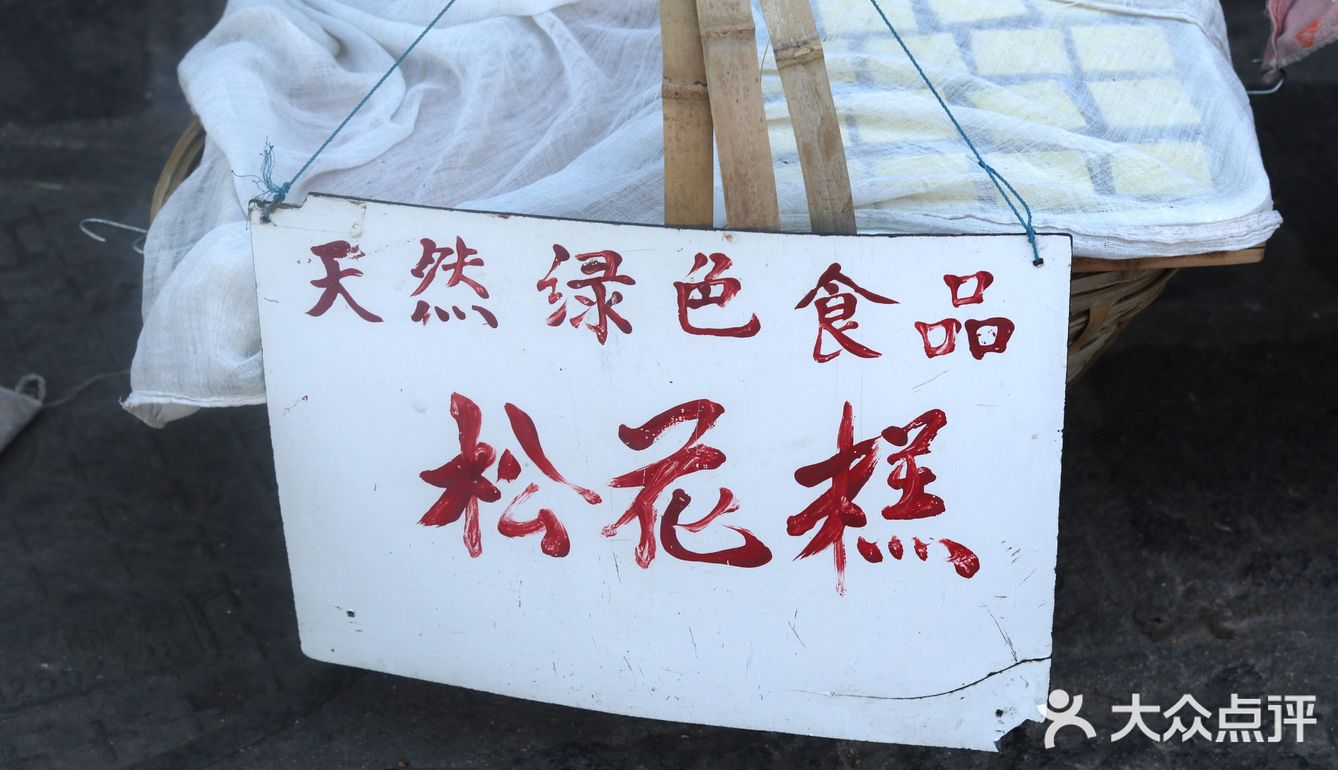 天然绿色食品
松花糕
大众点评